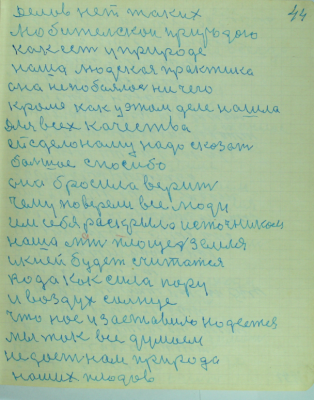 44
делов нет таких
любительское природою
как ест у природе
наша людская практика
она непобоялас ничего
кроме как у этом деле нашла
для всех качества
ей сделоному надо сказат
большое спосибо
она бросила верит
чему поверели все люди
им себя раскрыла источником
наша мт площед земля
и кней будет считатся
вода как сила пару
и воздух солнце
что нос и заставило надеется
мы так все думаем
недает нам природа
наших плодов